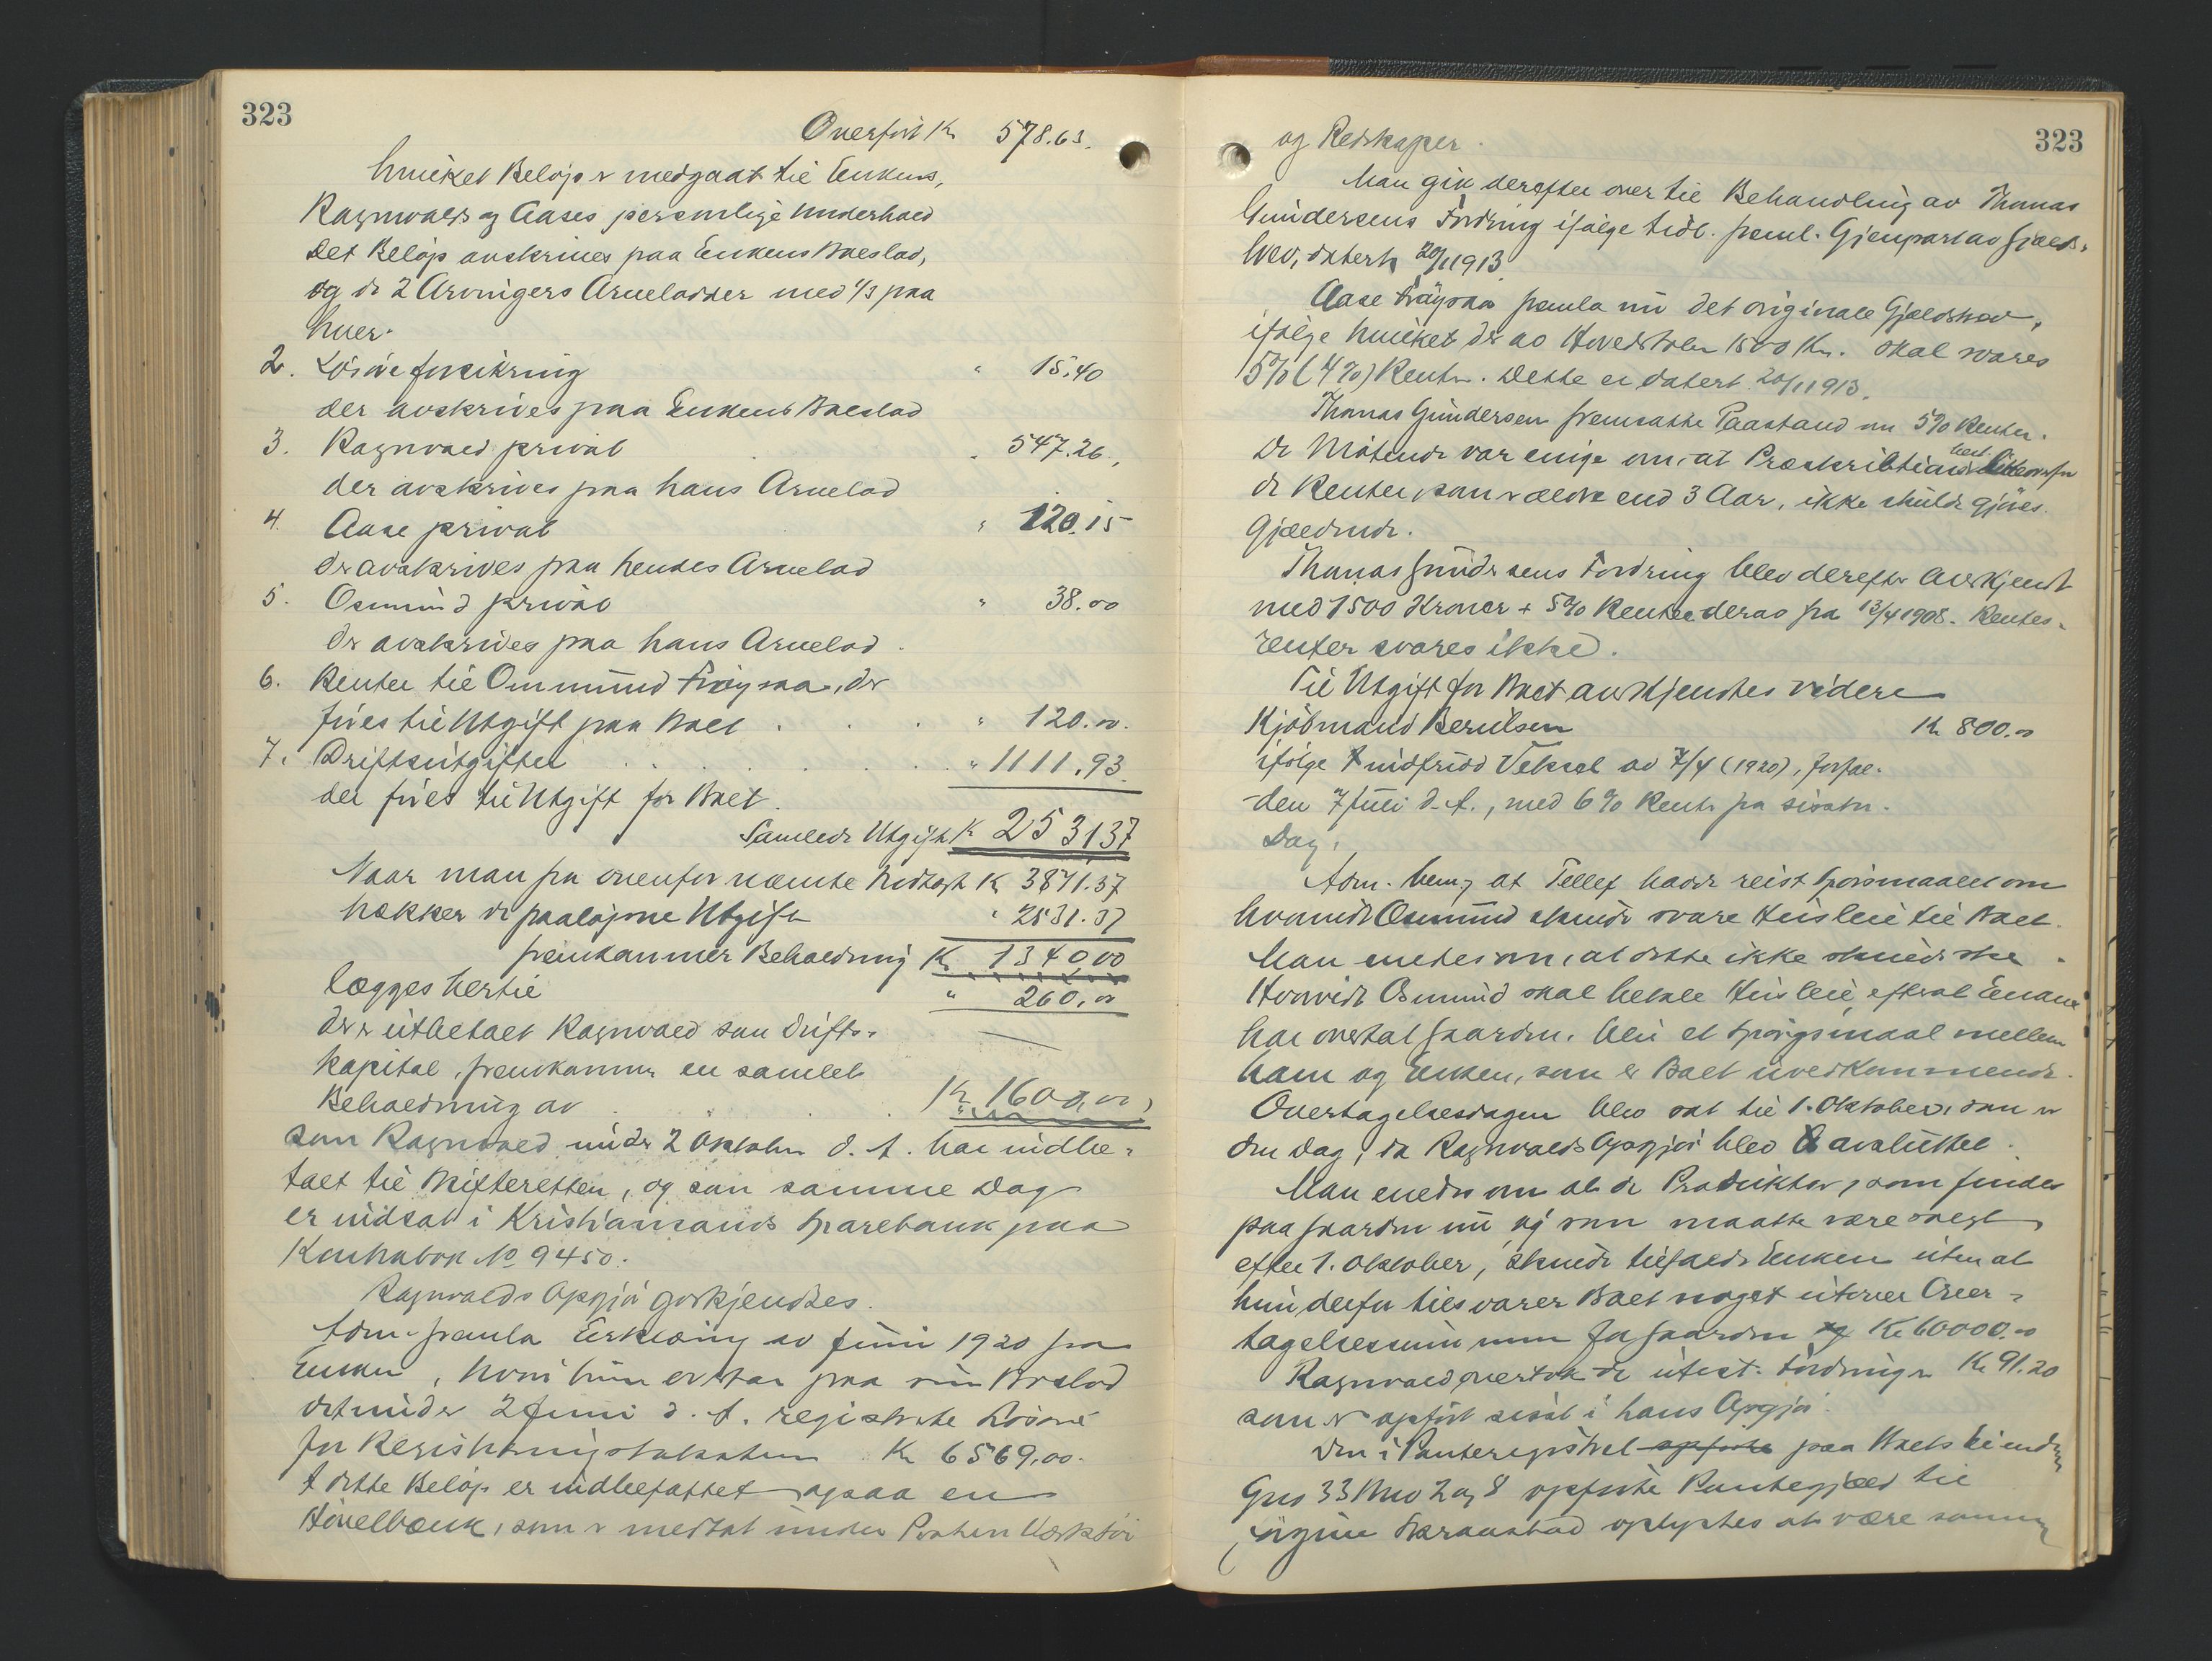 323
Overført Kr 578.63.
hvilket Beløp er medgaat til Enkens,
Ragnvalds og Aases personlige Underhold
Det Beløp avskrives paa Enkens Boeslod,
og de 2 Arvingers Arvelodder med 1/3 paa
hver.
2. Løsøreforsikring " 15.40
der avskrives paa Enkens Boeslod
3. Ragnvald privat " 547.26.
der avskrives paa hans Arvelod
4. Aase privat " 120.15
der avskrives paa hendes Arvelod
5. Osmund privat " 38.00
der avskrives paa hans Arvelod.
6. Renter til Ommund Frøysaa, der
føres til Utgift paa Boet . . . " 120.00.
7. Driftsutgifter . . . . . . . " 1111.93.
der føres til Utgift for Boet.
Samlede Utgift Kr 2531.37
Naar man fra ovenfor nævnte Indtægt Kr 3871.37
trækker de paaløpne Utgifter " 2531.37
fremkommer Beholdning Kr 1340.00
lægges hertil " 260.00
der er utbetalt Ragnvald som Drifts-
kapital, fremkommer en samlet
Beholdning av . . . Kr 1600,00,
som Ragnvald under 2 Oktober d. A. har indbe-
talt til Skifteretten, og som samme Dag
er indsat i Kristiansands Sparebank paa
Kontrabok No 9450.
Ragnvalds Opgjør godkjendtes.
Adm. fremla Erklæring av Juni 1920 fra
Enken, hvori hun overtar paa sin Boslod
det under 2 Juni d. A. registrerte Løsøre
for Registreringstaksten Kr 6569,00.
I dette Beløp er indbefattet ogsaa en
Høvelbænk, som er medtat under Posten Værktøi
323
og Redskaper.
Man gik derefter over til Behandling av Thomas
Gundersens Fordring ifølge tidl. freml. Gjenpart av Gjælds-
brev, datert 20/1 1913
Aase Frøysaa fremla nu det originale Gjældsbrev,
ifølge hvilket der av Hovedstolen 1500 Kr. skal svares
5% (4%) Renter. Dette er datert 20/1 1913.
Thomas Gundersen fremsatte Paastand om 5% Renter.
De Møtende var enige om, at Præskription
de Renter som er ældre end 3 Aar, ikke skulde gjøres
gjældende.
Thomas Gundersens Fordring blev derefter anerkjendt
med 1500 Kroner + 5% Renter derav fra 13/4 1908. Rentes-
renter svares ikke.
Til Utgift for Boet anerkjendtes videre
Kjøbmand Berulsen Kr 800.00
ifølge indfridd Veksel av 7/4 (1920), forfal-
den 7 Juli d. A., med 6% Rente fra sidstn.
Dag.
Adm. bem., at Tellef hadde reist Spørsmaalet om
hvorvidt Osmund skulde svare Husleie til Boet.
Man enedes om, at dette ikke skulde ske.
Hvorvidt Osmund skal betale Husleie, efterat Enken
har overtat Gaarden, blir et Spørgsmaal mellem
ham og Enken, som er Boet uvedkommende.
Overtagelsesdagen blev sat til 1. Oktober, som er
den Dag, da Ragnvalds Opgjør blev avsluttet.
Man enedes om at de Produkter, som findes
paa Gaarden nu og som maatte være solgt
efter 1. Oktober, skulde tilfalde Enken uten at
hun derfor tilsvarer Boet noget utover Over-
tagelsessummen for Gaarden Kr 60000.00
Ragnvald overtok de utest. Fordringer Kr 91.20
som er opført sidst i hans Opgjør.
Den i Panteregistret opførte paa Boets Eiendom
Gno 33 Bno 2 og 8 opførte Pantegjæld til
Jørgine Skraastad oplystes at være samme